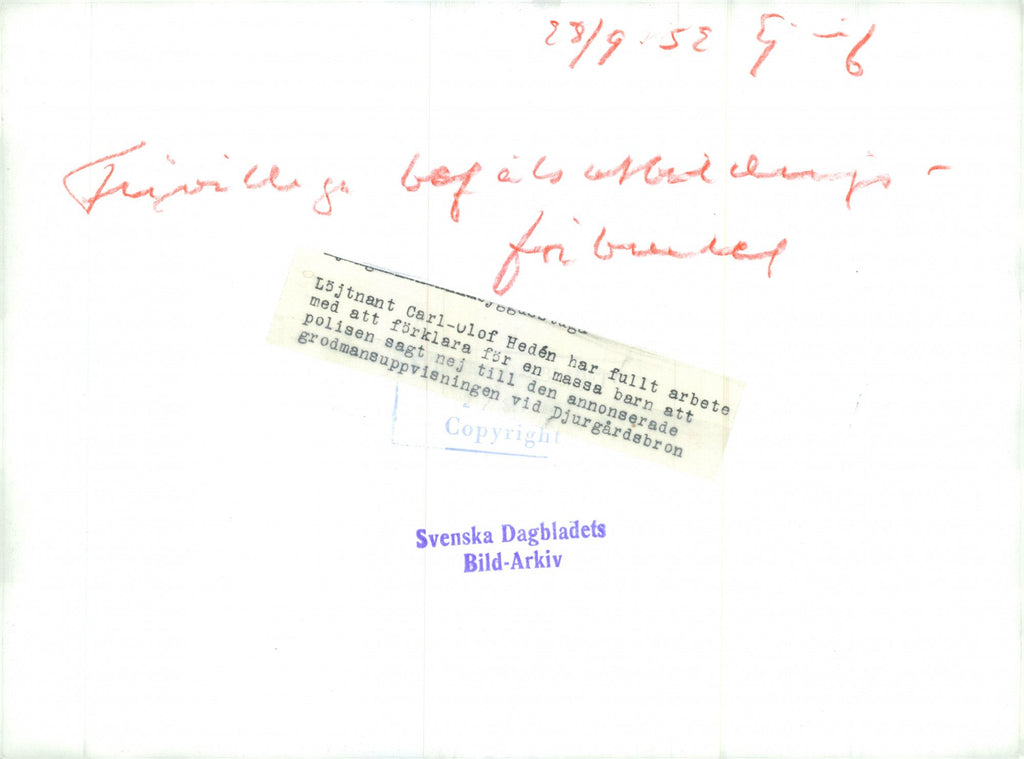 28/9 52
Frivilliga befälsutbildnings-
förbundet
Löjtnant Carl-Olof Hedén har fullt arbete
med att förklara för en massa barn att
polisen sagt nej till den annonserade
grodmansuppvisningen vid Djurgårdsbron
Copyright
Svenska Dagbladets
Bild-Arkiv